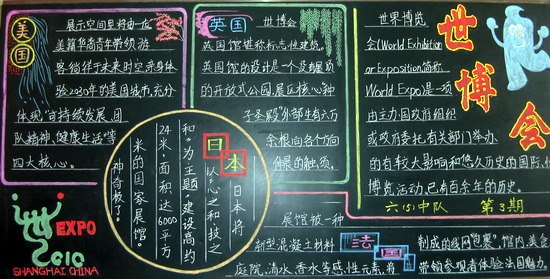 美国
展示空间里将由一位
美籍华裔青年带领游
客徜徉于未来时空,亲身体
验2030年的美国城市,充分
体现“可持续发展、团
队精神、健康生活”等
四大核心。
英国 世博会
英国馆堪称标志性建筑,
英国馆的设计是一个
的开放式公园,展区核心“种
子圣殿”外部生有六万
余根向各个方向
伸展的触须。
世博会
世界博览
会(World Exhibition
or Exposition简称
World Expo)是一项
由主办国政府组织
或政府委托有关部门举办
的有较大影响和悠久历史的国际性
博览活动,已有百余年的历史。
六(5)中队 第3期
日本
日本将
以“心之和,技之
和”为主题,建设高约
24米,面积达6000平方
米的国家展馆。
神奇极了。
EXPO
2010
SHANGHAI CHINA
法国
展馆被一种
新型混凝土材料
制成的线网“包裹”,馆内,美食
庭院,清水,香水等感性元素,将
带领参观者体验法国魅力。